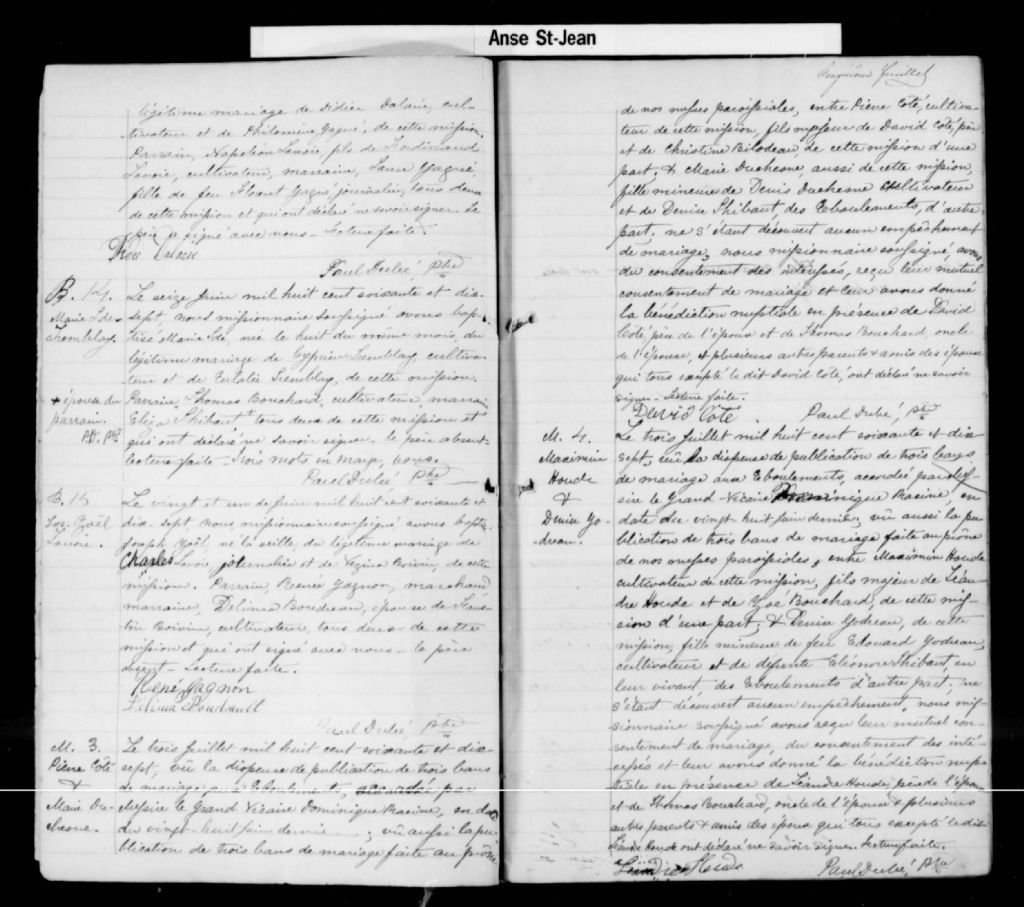 Anse St-Jean
légitime mariage de Didier Dalaire, cul-
tivateur et de Philomène Gagné, de cette mission.
Parrain, Napoléon Lavoie, fils de Ferdinand
Lavoie, cultivateur, marraine, Laure Gagné,
fille de feu Gagné, journalier, tous deux
de cette mission et qui ont déclaré ne savoir signer. Le
père a signé avec nous - Lecture faite.
Dalaire
Paul Dubé Ptre
B. 14.
Marie
Tremblay.
+ épouse du
parrain.
P.D. Ptre
Le seize Juin mil huit cent soixante et dix-
sept, nous missionnaire soussigné avons bap-
tisé Marie née le huit du même mois, du
légitime mariage de Cyprien Tremblay, cultiva-
teur et de Eulalie Tremblay, de cette mission.
Parrain, Thomas Bouchard, cultivateur, marraine
Eliza Thibaut + tous deux de cette mission et
qui ont déclaré ne savoir signer. le père absent.
lecture faite - Trois mots en marge, bons.
Paul Dubé Ptre
B. 15
Jos. Joël
Lavoie.
Le vingt et un de Juin mil huit cent soixante et
dix-sept, nous missionnaire soussigné avons baptisé
Joseph Joël, né la veille, du légitime mariage de
Charles Lavoie, journalier et de Boivin, de cette
mission. Parrain, Renée Gagnon, marchand,
marraine, Delima Boudreau, épouse de Faus-
tin Boivin, cultivateur, tous deux de cette
mission et qui ont signé avec nous - le père
absent - Lecture faite.
René Gagnon
Délima Boudreault
Paul Dubé, Ptre
M. 3.
Pierre Coté
&
Marie Du-
chesne.
Le trois Juillet mil huit cent soixante et dix-
sept, vû la dispense de publication de trois bans
de mariage aux Eboulements, accordée par
Messire le Grand Vicaire Dominique Racine, en date
du vingt-huit Juin dernier; vû aussi la pu-
blication de trois bans de mariage faite au prône
feuillet
de nos messes paroissiales, entre Pierre Coté, cultiva-
teur de cette mission, fils majeur de David Coté, père
et de Christine Bilodeau, de cette mission d'une
part, & Marie Duchesne, aussi de cette mission,
fille mineure de Denis Duchesne cultivateur
et de Denise Thibaut, des Eboulements, d'autre
part, ne s'étant découvert aucun empêchement
de mariage, nous missionnaire soussigné, avons
du consentement des intéressés, reçu leur mutuel
consentement de mariage et leur avons donné
la bénédiction nuptiale en présence de David
Coté, père de l'époux et de Thomas Bouchard, oncle
de l'épouse, & plusieurs autres parents & amis des époux
qui tous excepté le dit David Coté, ont déclaré ne savoir
signer. Lecture faite.
David Cote
Paul Dubé, Ptre
M. 4.
Maximin
Houde
&
Denise Go-
dreau.
Le trois Juillet mil huit cent soixante et dix
sept, vû la dispense de publication de trois bans
de mariage aux Eboulements, accordée par Mes-
sire le Grand-Vicaire Dominique Racine, en
date du vingt-huit Juin dernier; vû aussi la pu-
blication de trois bans de mariage faite au prône
de nos messes paroissiales, entre Maximin Houde
cultivateur de cette mission, fils majeur de Léan-
dre Houde et de Zoé Bouchard, de cette mis-
sion d'une part; & Denise Godreau, de cette
mission, fille mineure de feu Edouard Godreau,
cultivateur et de défunte Eléonore Thibaut, en
leur vivant, des Eboulements d'autre part; ne
s'étant découvert aucun empêchement, nous mis-
sionnaire soussigné avons reçu leur mutuel con-
sentement de mariage, du consentement des inté-
ressés et leur avons donné la bénédiction nup-
tiale en présence de Léandre Houde, père de l'époux
et de Thomas Bouchard, oncle de l'épouse & plusieurs
autres parents & amis des époux qui tous excepté le dit
Léandre Houde ont déclaré ne savoir signer. Lecture faite.
Léandre Houde
Paul Dubé, Ptre